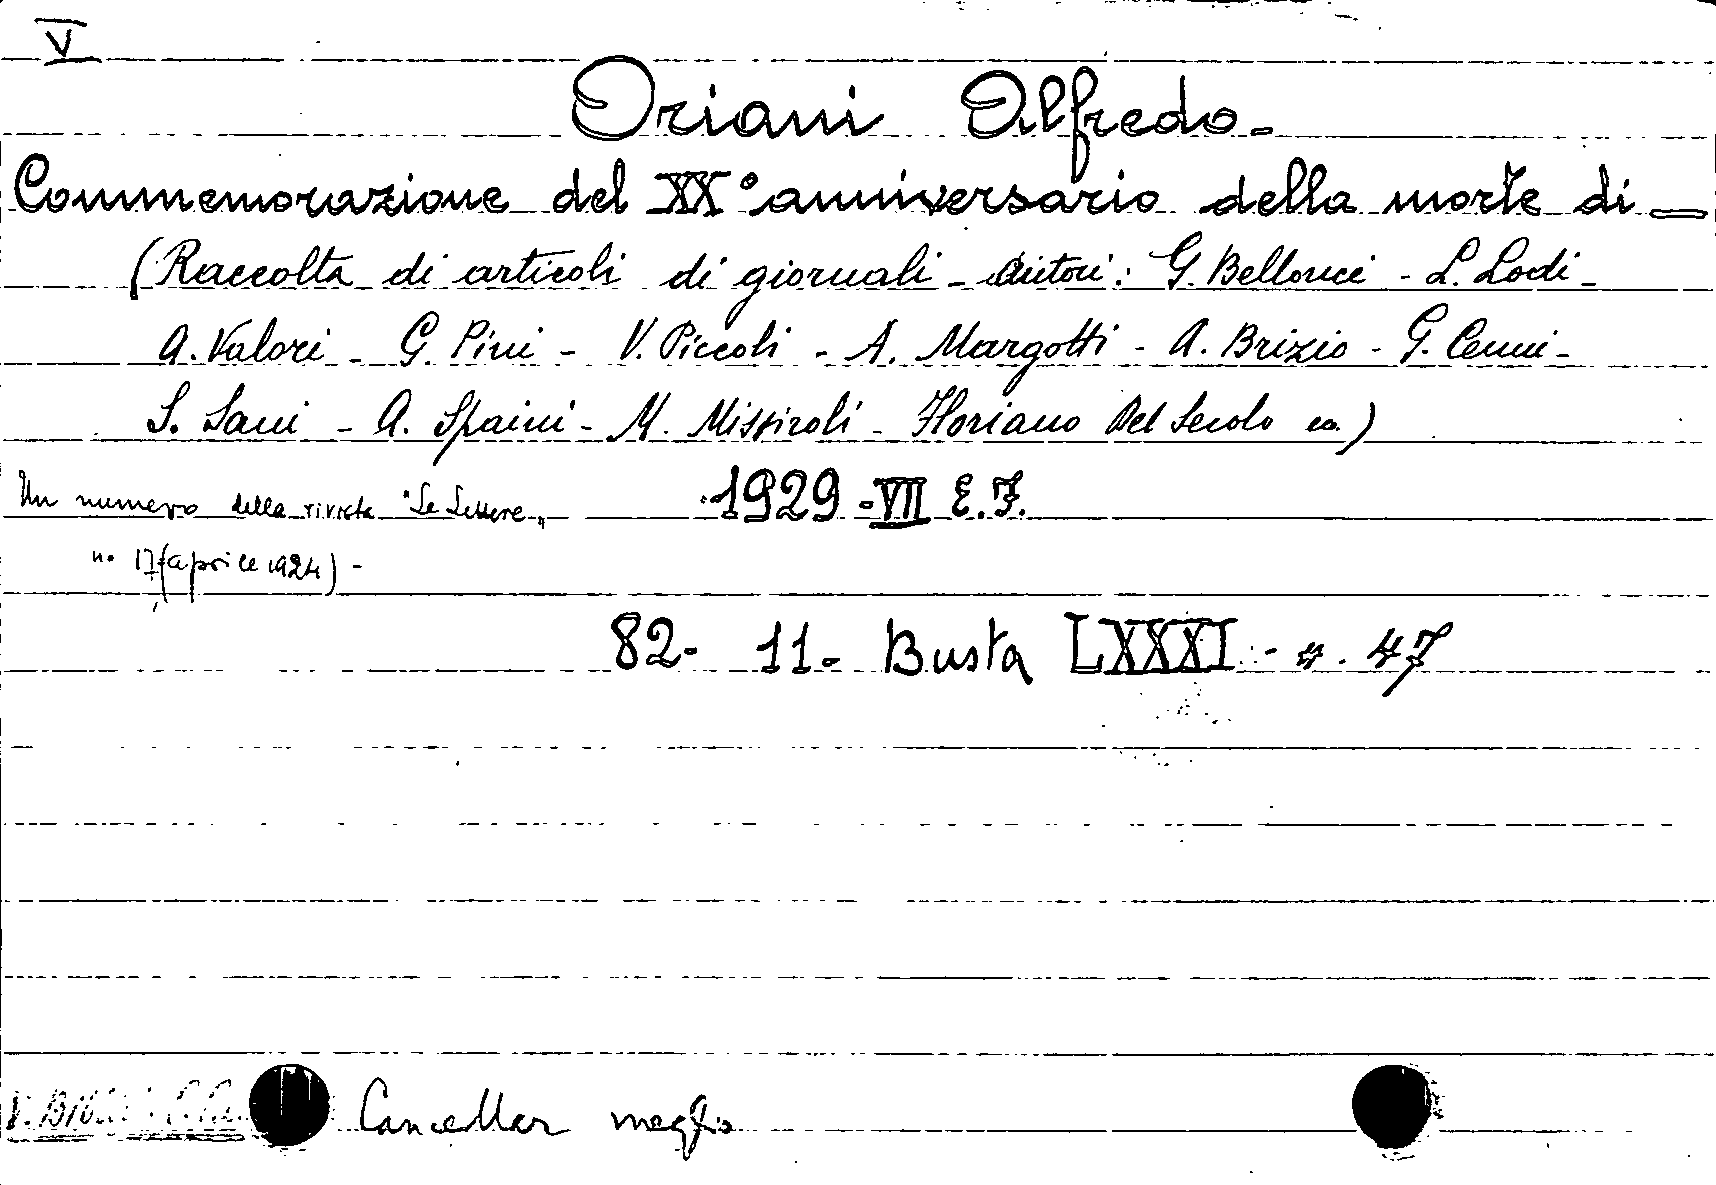 V
Oriani Alfredo.
Commemorazione del XX° anniversario della morte di —
(Raccolta di articoli di giornali - Autori: G. Bellonci - L. Lodi -
A. Valori - G. Pini - V. Piccoli - A. Margotti - A. Brizio - G. Cenni -
S. Sani - A. Spaini - M. Missiroli - Floriano Del Secolo ec.)
Un numero della rivista "Le Lettere„ 1929 - VII E.F.
n. 17 (aprile 1924) -
82 - 11 - Busta LXXXI - n. 47
Cancellar meglio